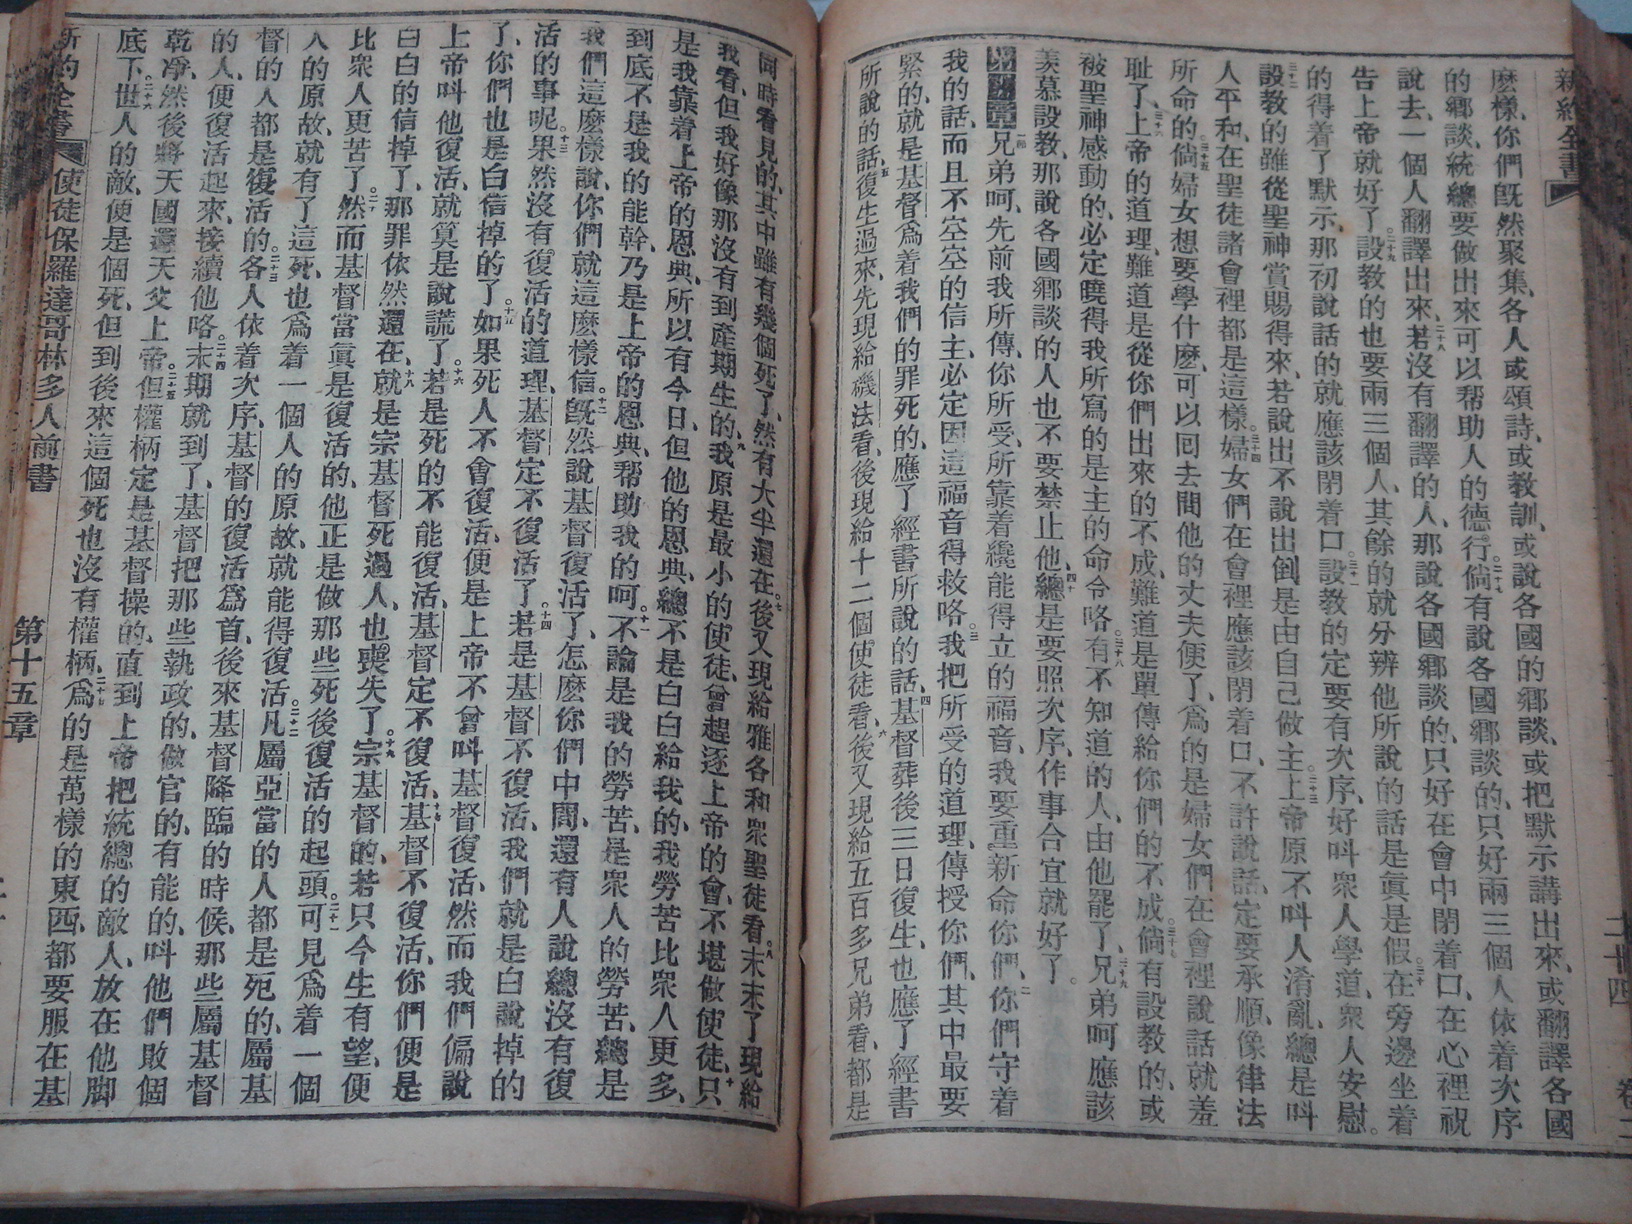 新約全書
二十四
麽樣、你們旣然聚集、各人或頌詩、或教訓、或說各國的鄉談、或把默示講出來、或翻譯各國
的鄉談、統總要做出來可以帮助人的德行。二十七倘有說各國鄉談的、只好兩三個人依着次序
說去、一個人翻譯出來、二十八若沒有翻譯的人、那說各國鄉談的、只好在會中閉着口、在心裡祝
告上帝就好了。二十九設教的也要兩三個人、其餘的就分辨他所說的話是眞是假。三十在旁邊坐着
的得着了默示、那初說話的就應該閉着口。三十一設教的定要有次序、好呌衆人學道、衆人安慰。
三十二設教的雖從聖神賞賜得來、若說出不說出倒是由自己做主。三十三上帝原不呌人淆亂、總是呌
人平和、在聖徒諸會裡都是這樣。三十四婦女們在會裡應該閉着口、不許說話、定要承順、像律法
所命的。三十五倘婦女想要學什麽、可以囘去問他的丈夫便了、爲的是婦女們在會裡說話就羞
耻了、三十六上帝的道理、難道是從你們出來的不成、難道是單傳給你們的不成。三十七倘有設教的、或
被聖神感動的、必定曉得我所寫的是主的命令咯。三十八有不知道的人、由他罷了、三十九兄弟呵應該
羨慕設教、那說各國鄉談的人也不要禁止他、四十總是要照次序、作事合宜就好了。
第十五章一節兄弟呵、先前我所傳、你所受、所靠着纔能得立的福音、我要重新命你們、二你們守着
我的話、而且不空空的信主、必定因這福音得救咯。三我把所受的道理、傳授你們、其中最要
緊的、就是基督爲着我們的罪死的、應了經書所說的話、四基督葬後三日復生、也應了經書
所說的話、五復生過來、先現給磯法看、後現給十二個使徒看、六後又現給五百多兄弟看、都是
同時看見的、其中雖有幾個死了、然有大半還在。七後又現給雅各和衆聖徒看。八末末了現給
我看、但我好像那沒有到產期生的、九我原是最小的使徒、曾趕逐上帝的會、不堪做使徒、十只
是我靠着上帝的恩典、所以有今日、但他的恩典、總不是白白給我的、我勞苦比衆人更多、
到底不是我的能幹、乃是上帝的恩典、帮助我的呵。十一不論是我的勞苦、是衆人的勞苦、總是
我們這麽樣說、你們就這麽樣信。十二旣然說基督復活了、怎麽你們中間、還有人說總沒有復
活的事呢。十三果然沒有復活的道理、基督定不復活了。十四若是基督不復活、我們就是白說掉的
了、你們也是白信掉的了。十五如果死人不會復活、便是上帝不曾呌基督復活、然而我們偏說
上帝呌他復活、就算是說謊了。十六若是死的不能復活、基督定不復活、十七基督不復活、你們便是
白白的信掉了、那罪依然還在、十八就是宗基督死過人、也喪失了。十九宗基督的、若只今生有望、便
比衆人更苦了。二十然而基督當眞是復活的、他正是做那些死後復活的起頭。二十一可見爲着一個
人的原故、就有了這死、也爲着一個人的原故、就能得復活。二十二凡屬亞當的人都是死的、屬基
督的人都是復活的。二十三各人依着次序、基督的復活爲首、後來基督降臨的時候、那些屬基督
的人、便復活起來、接續他咯。二十四末期就到了、基督把那些執政的、做官的、有能的、呌他們敗個
乾凈、然後將天國還天父上帝。二十五但權柄定是基督操的、直到上帝把統總的敵人、放在他脚
底下。二十六世人的敵、便是個死、但到後來這個死也沒有權柄、二十七爲的是萬樣的東西、都要服在基
新約全書
使徒保羅達哥林多人前書
第十五章